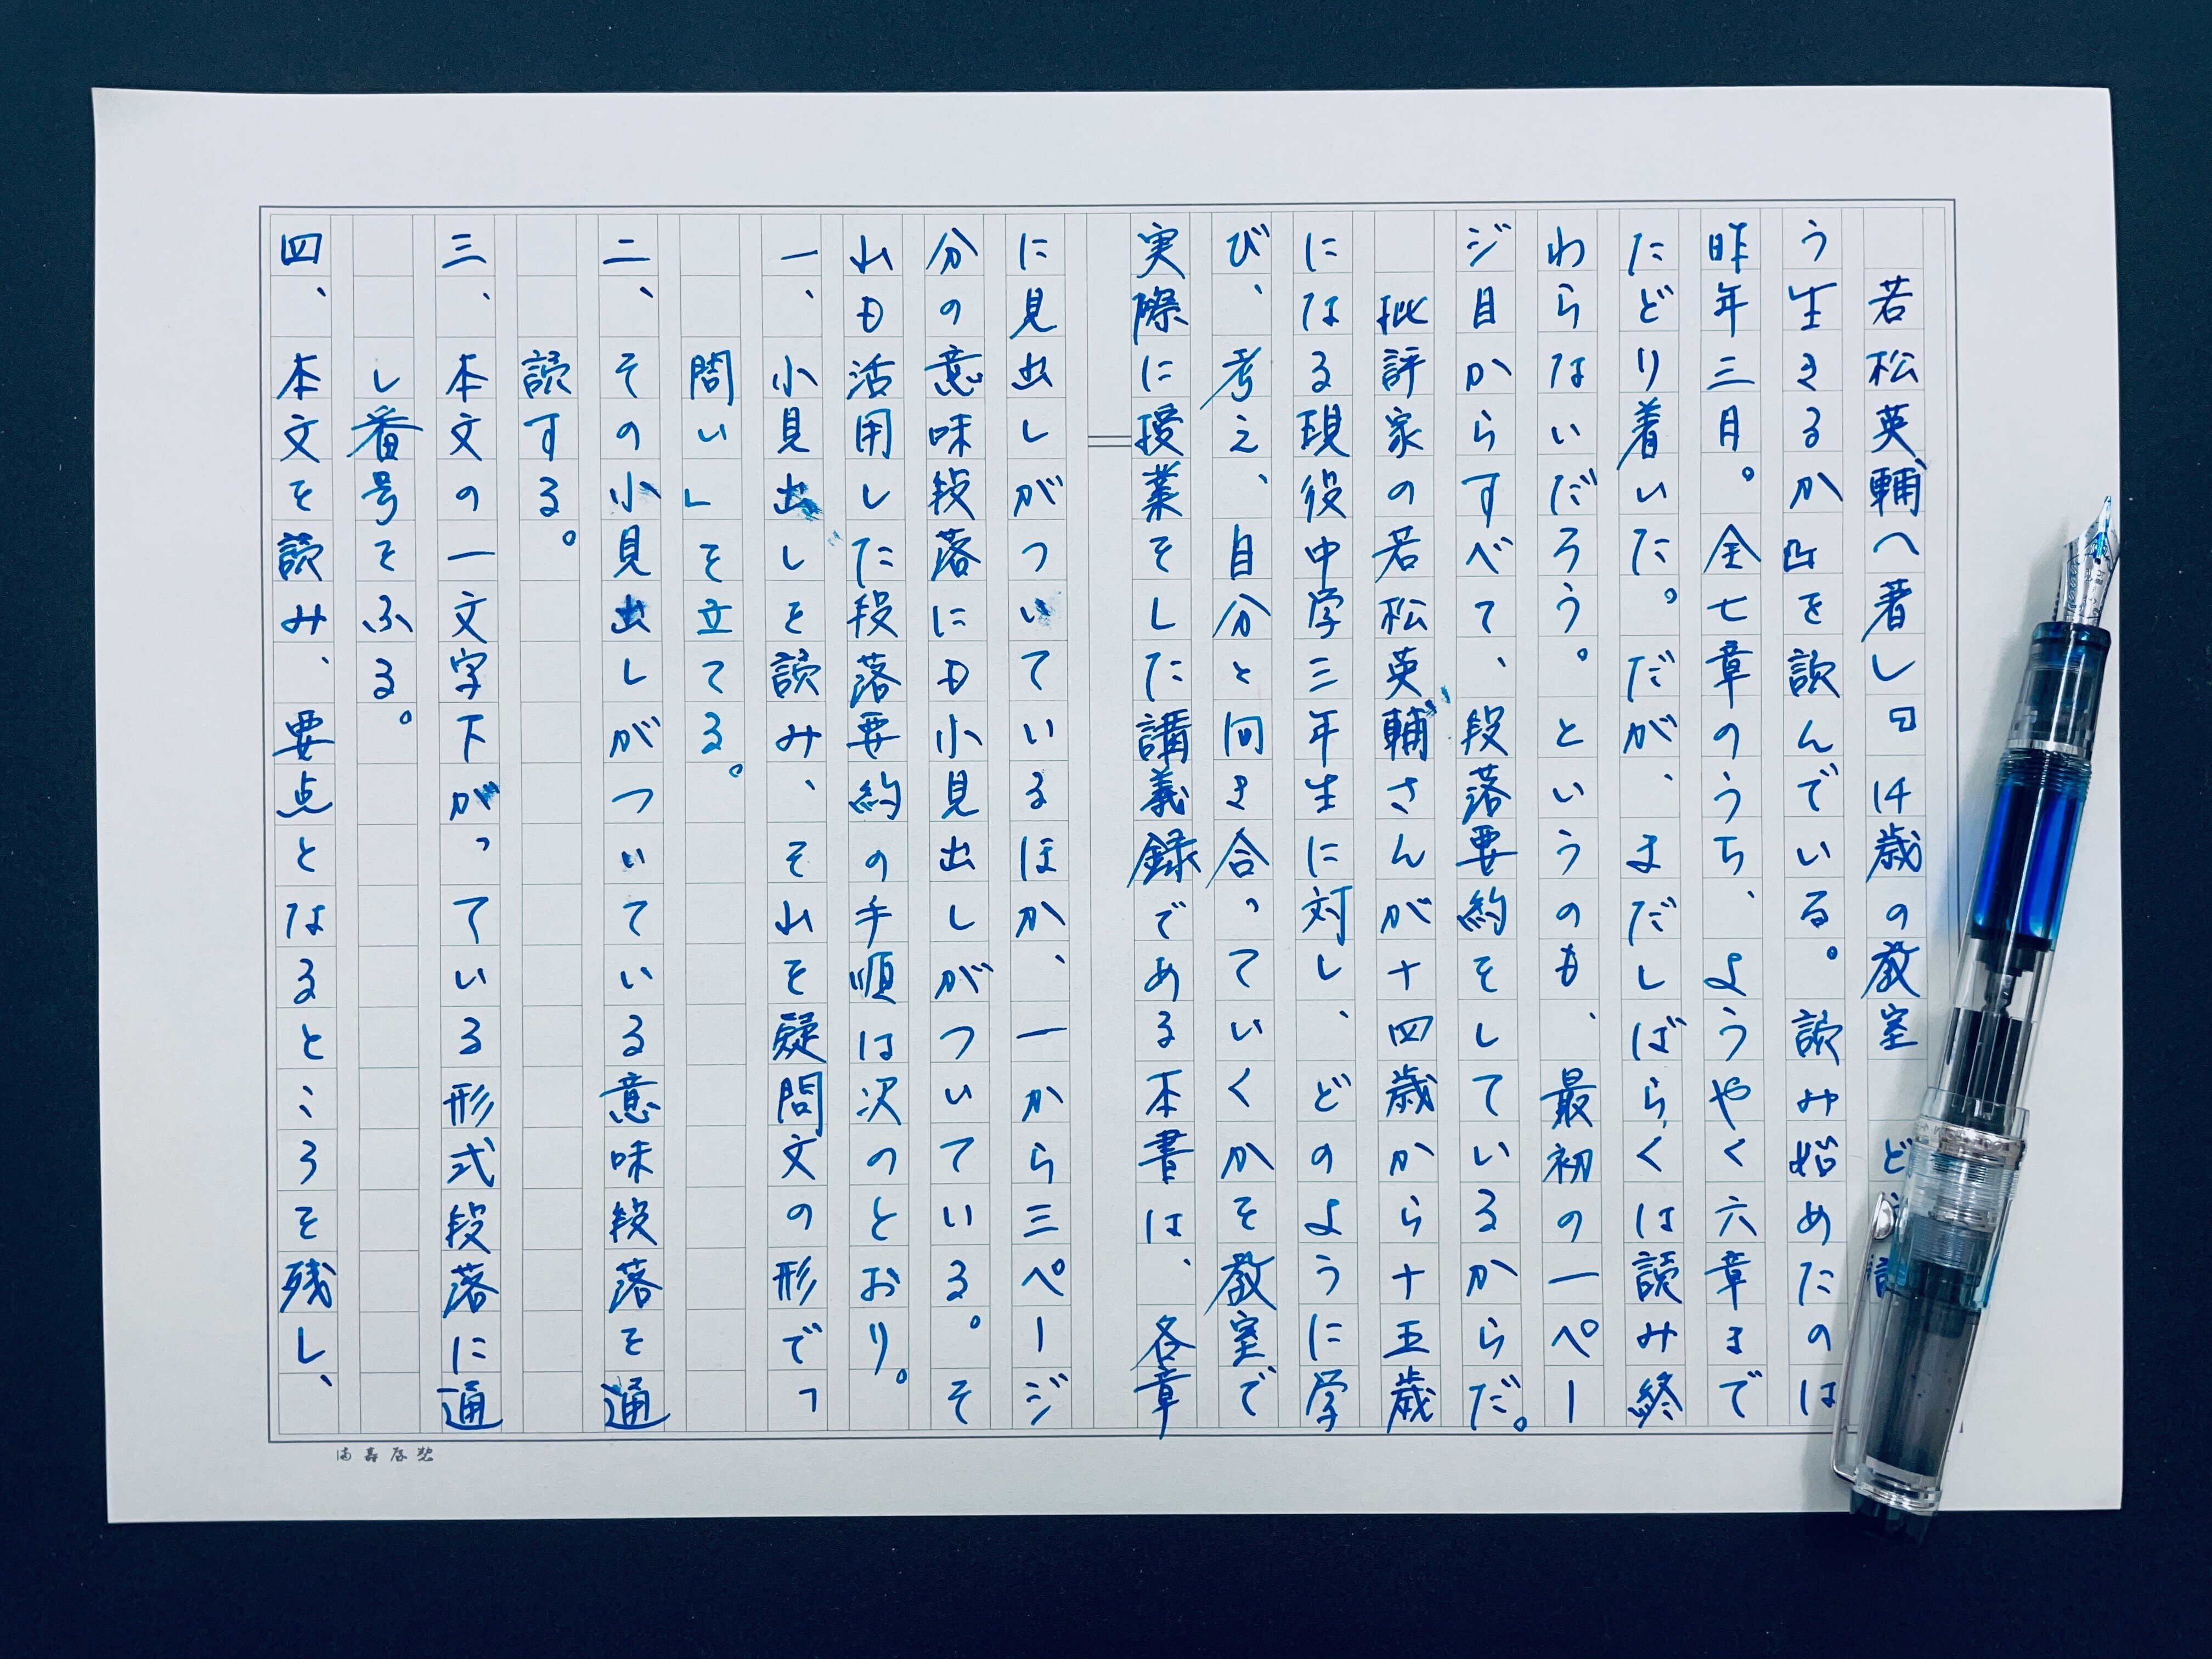 若松英輔へ著し『14歳の教室　ど
う生きるか』を読んでいる。読み始めたのは
昨年三月。全七章のうち、ようやく六章まで
たどり着いた。だが、まだしばらくは読み終
わらないだろう。というのも、最初の一ペー
ジ目からすべて、段落要約をしているからだ。
　批評家の若松英輔さんが十四歳から十五歳
になる現役中学三年生に対し、どのように学
び、考え、自分と向き合っていくかを教室で
実際に授業をした講義録である本書は、各章
に見出しがついているほか、一から三ページ
分の意味段落にも小見出しがついている。そ
れも活用した段落要約の手順は次のとおり。
一、小見出しを読み、それを疑問文の形で「
　　問い」を立てる。
二、その小見出しがついている意味段落を通
　　読する。
三、本文の一文字下がっている形式段落に通
　　し番号をふる。
四、本文を読み、要点となるところを残し、